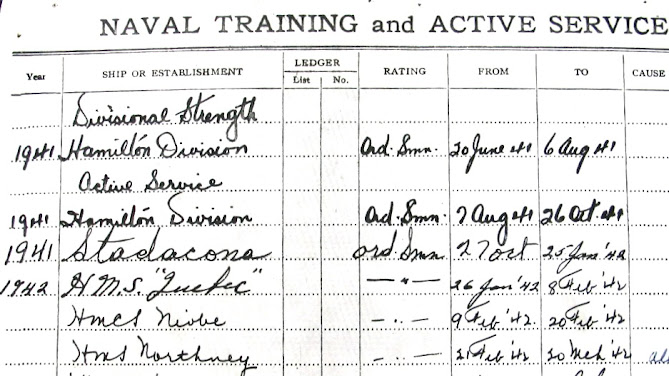 NAVAL TRAINING and ACTIVE SERVICE
Year SHIP OR ESTABLISHMENT LEDGER List No. RATING FROM TO CAUSE
Divisional Strength
1941 Hamilton Division Ord. Smn. 20 June 41 6 Aug 41
Active Service
1941 Hamilton Division Ord. Smn. 7 Aug 41 26 Oct. 41
1941 Stadacona ord Smn 27 oct 25 Jan '42
1942 H.M.S. "Quebec" — " — 26 Jan '42 8 Feb '42
HMCS Niobe — .. — 9 Feb '42. 20 Feb '42
HMS Northney — .. — 21 Feb '42 20 Mch '42